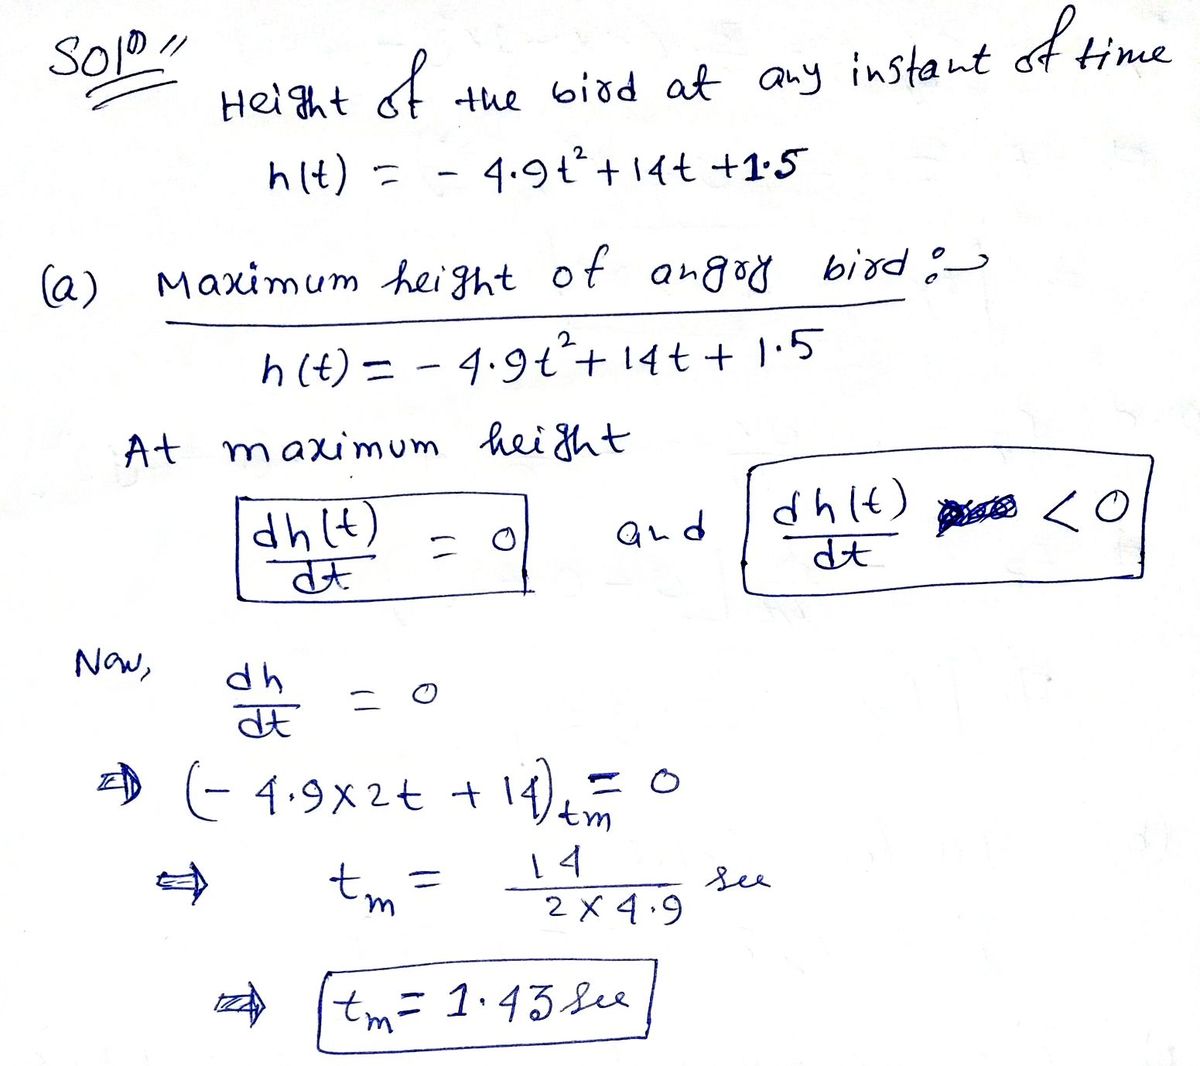 Solⁿ //
Height of the bird at any instant of time
h(t) = - 4.9t² + 14t + 1.5
(a) Maximum height of angry bird :→
h(t) = - 4.9t² + 14t + 1.5
At maximum height
dh(t)/dt = 0 and dh(t)/dt < 0
Now, dh/dt = 0
⇒ (- 4.9 × 2t + 14)tm = 0
⇒ tm = 14/(2 × 4.9) sec
⇒ tm = 1.43 sec